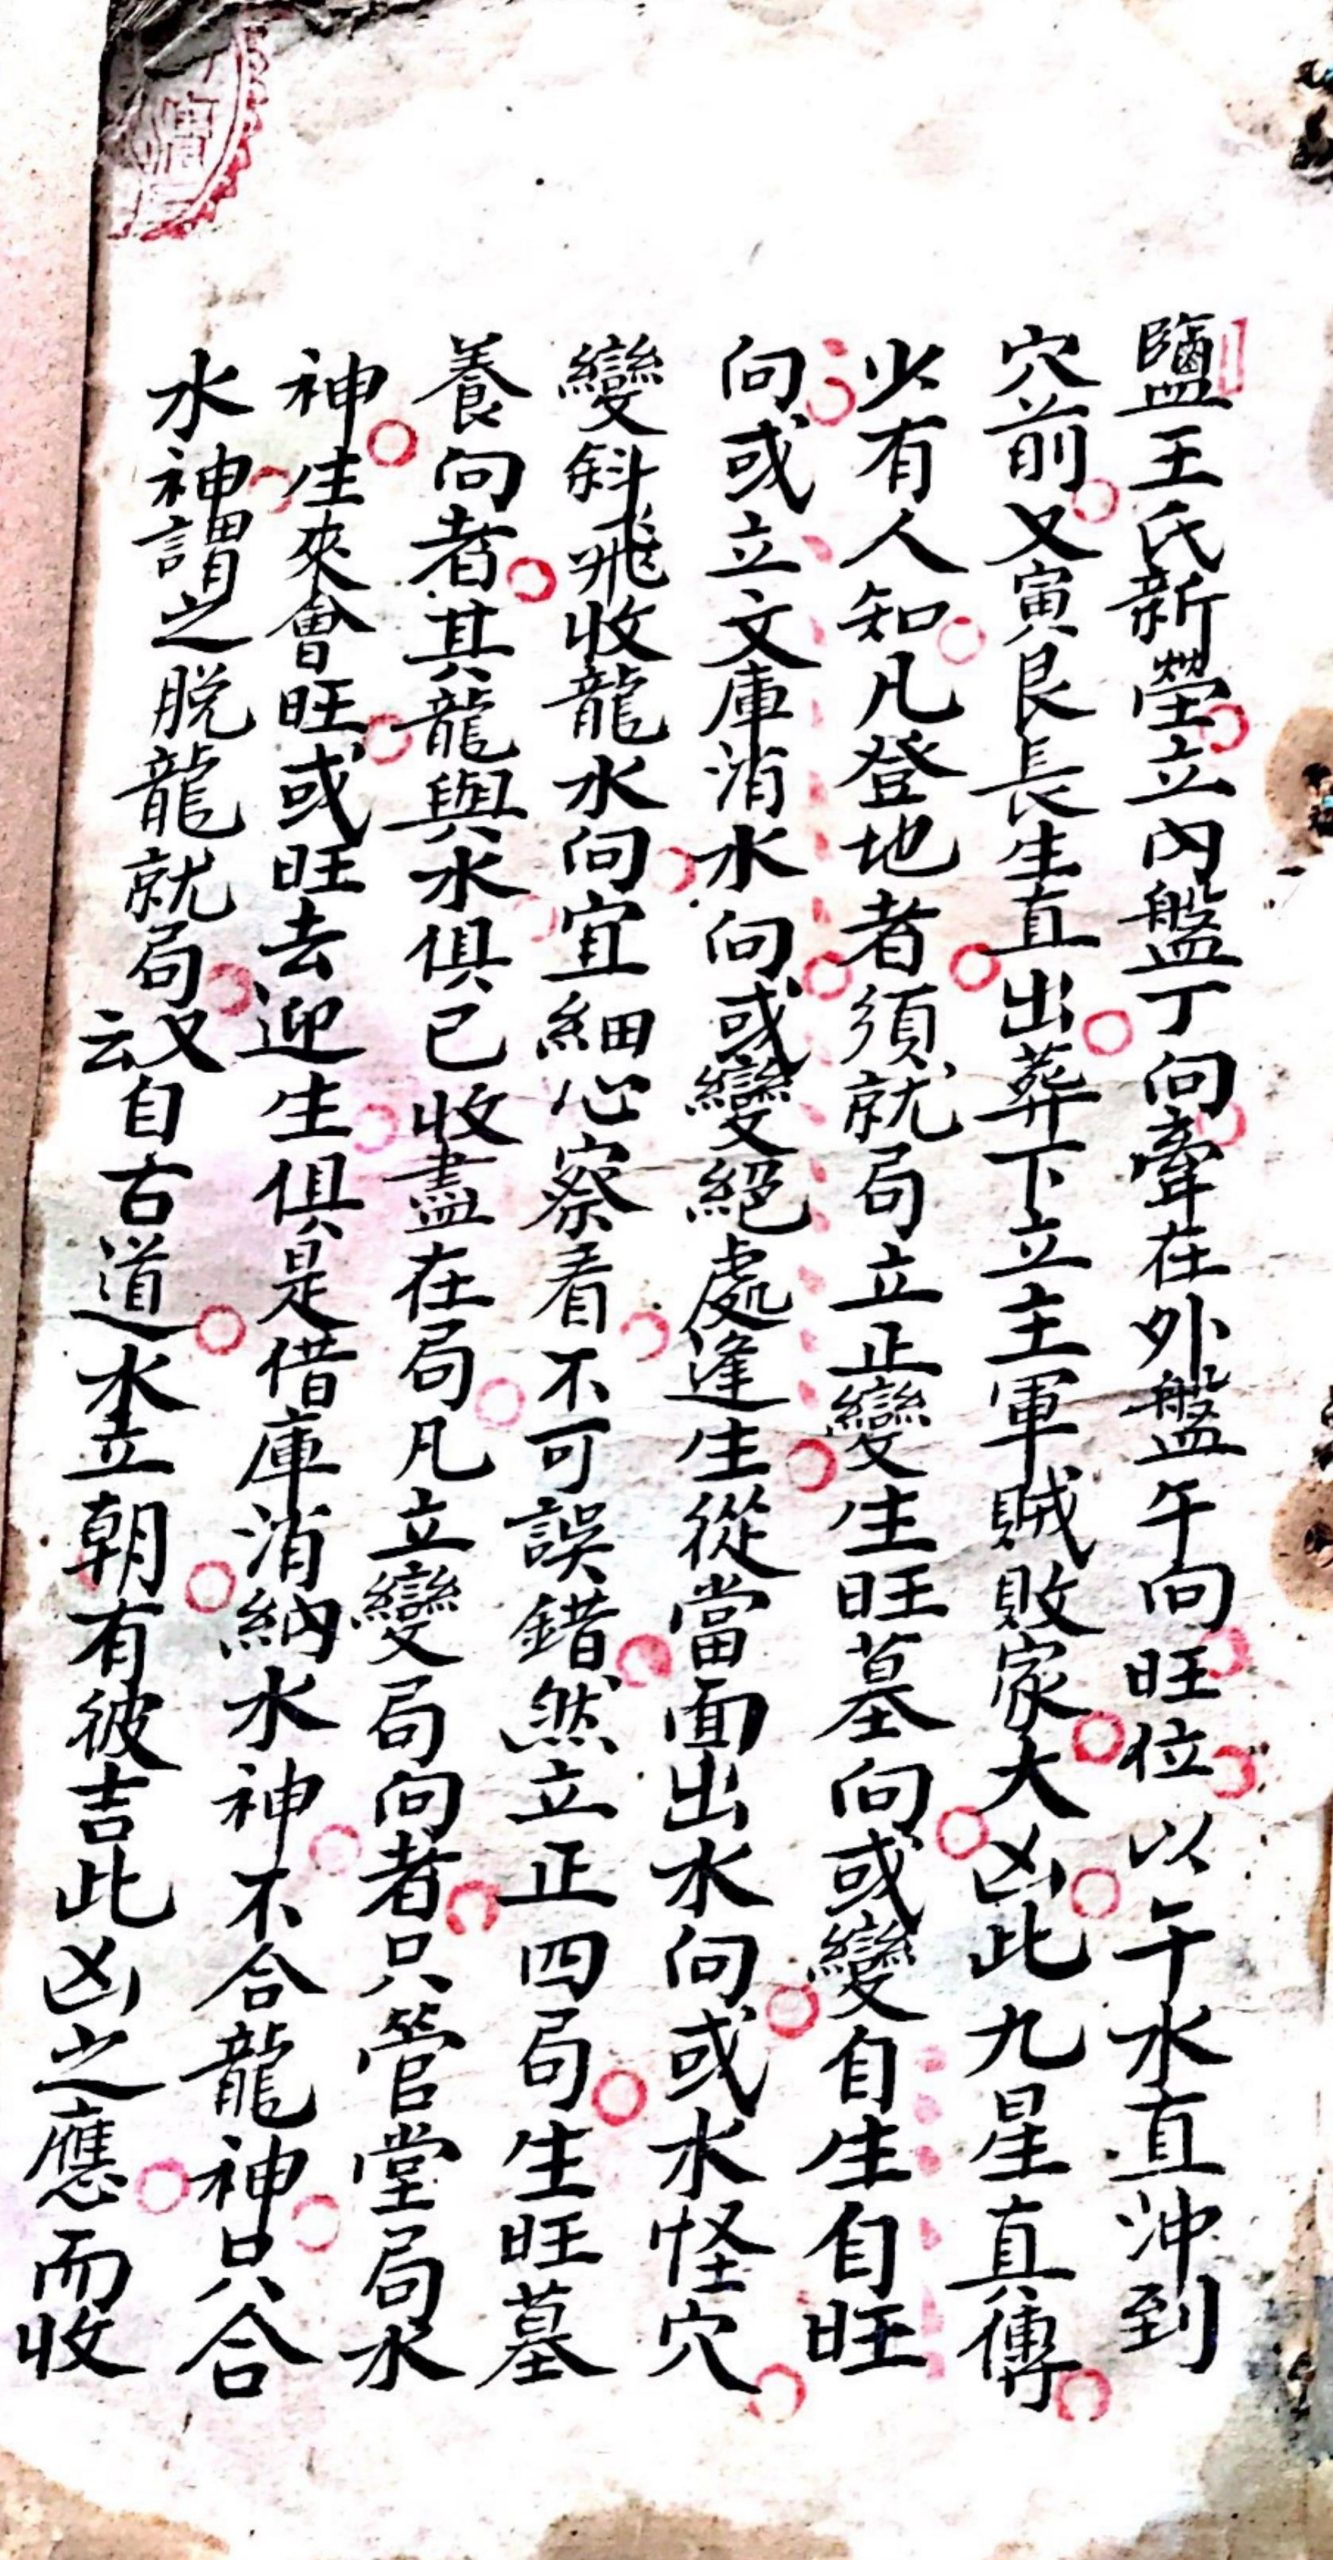 鹽王氏新塋立內盤丁向牽在外盤午向旺位以午水直沖到
穴前又寅艮長生直出葬下立主軍賊敗家大凶此九星真傳
少有人知凡登地者須就局立正變生旺墓向或變自生自旺
向或立文庫消水向或變絕處逢生從當面出水向或水怪穴
變斜飛收龍水向宜細心察看不可誤錯然立正四局生旺墓
養向者其龍與水俱已收盡在局凡立變局向者只管堂局水
神生來會旺或旺去迎生俱是借庫消納水神不合龍神只合
水神謂之脫龍就局又云自古道水立朝有彼吉此凶之應而收